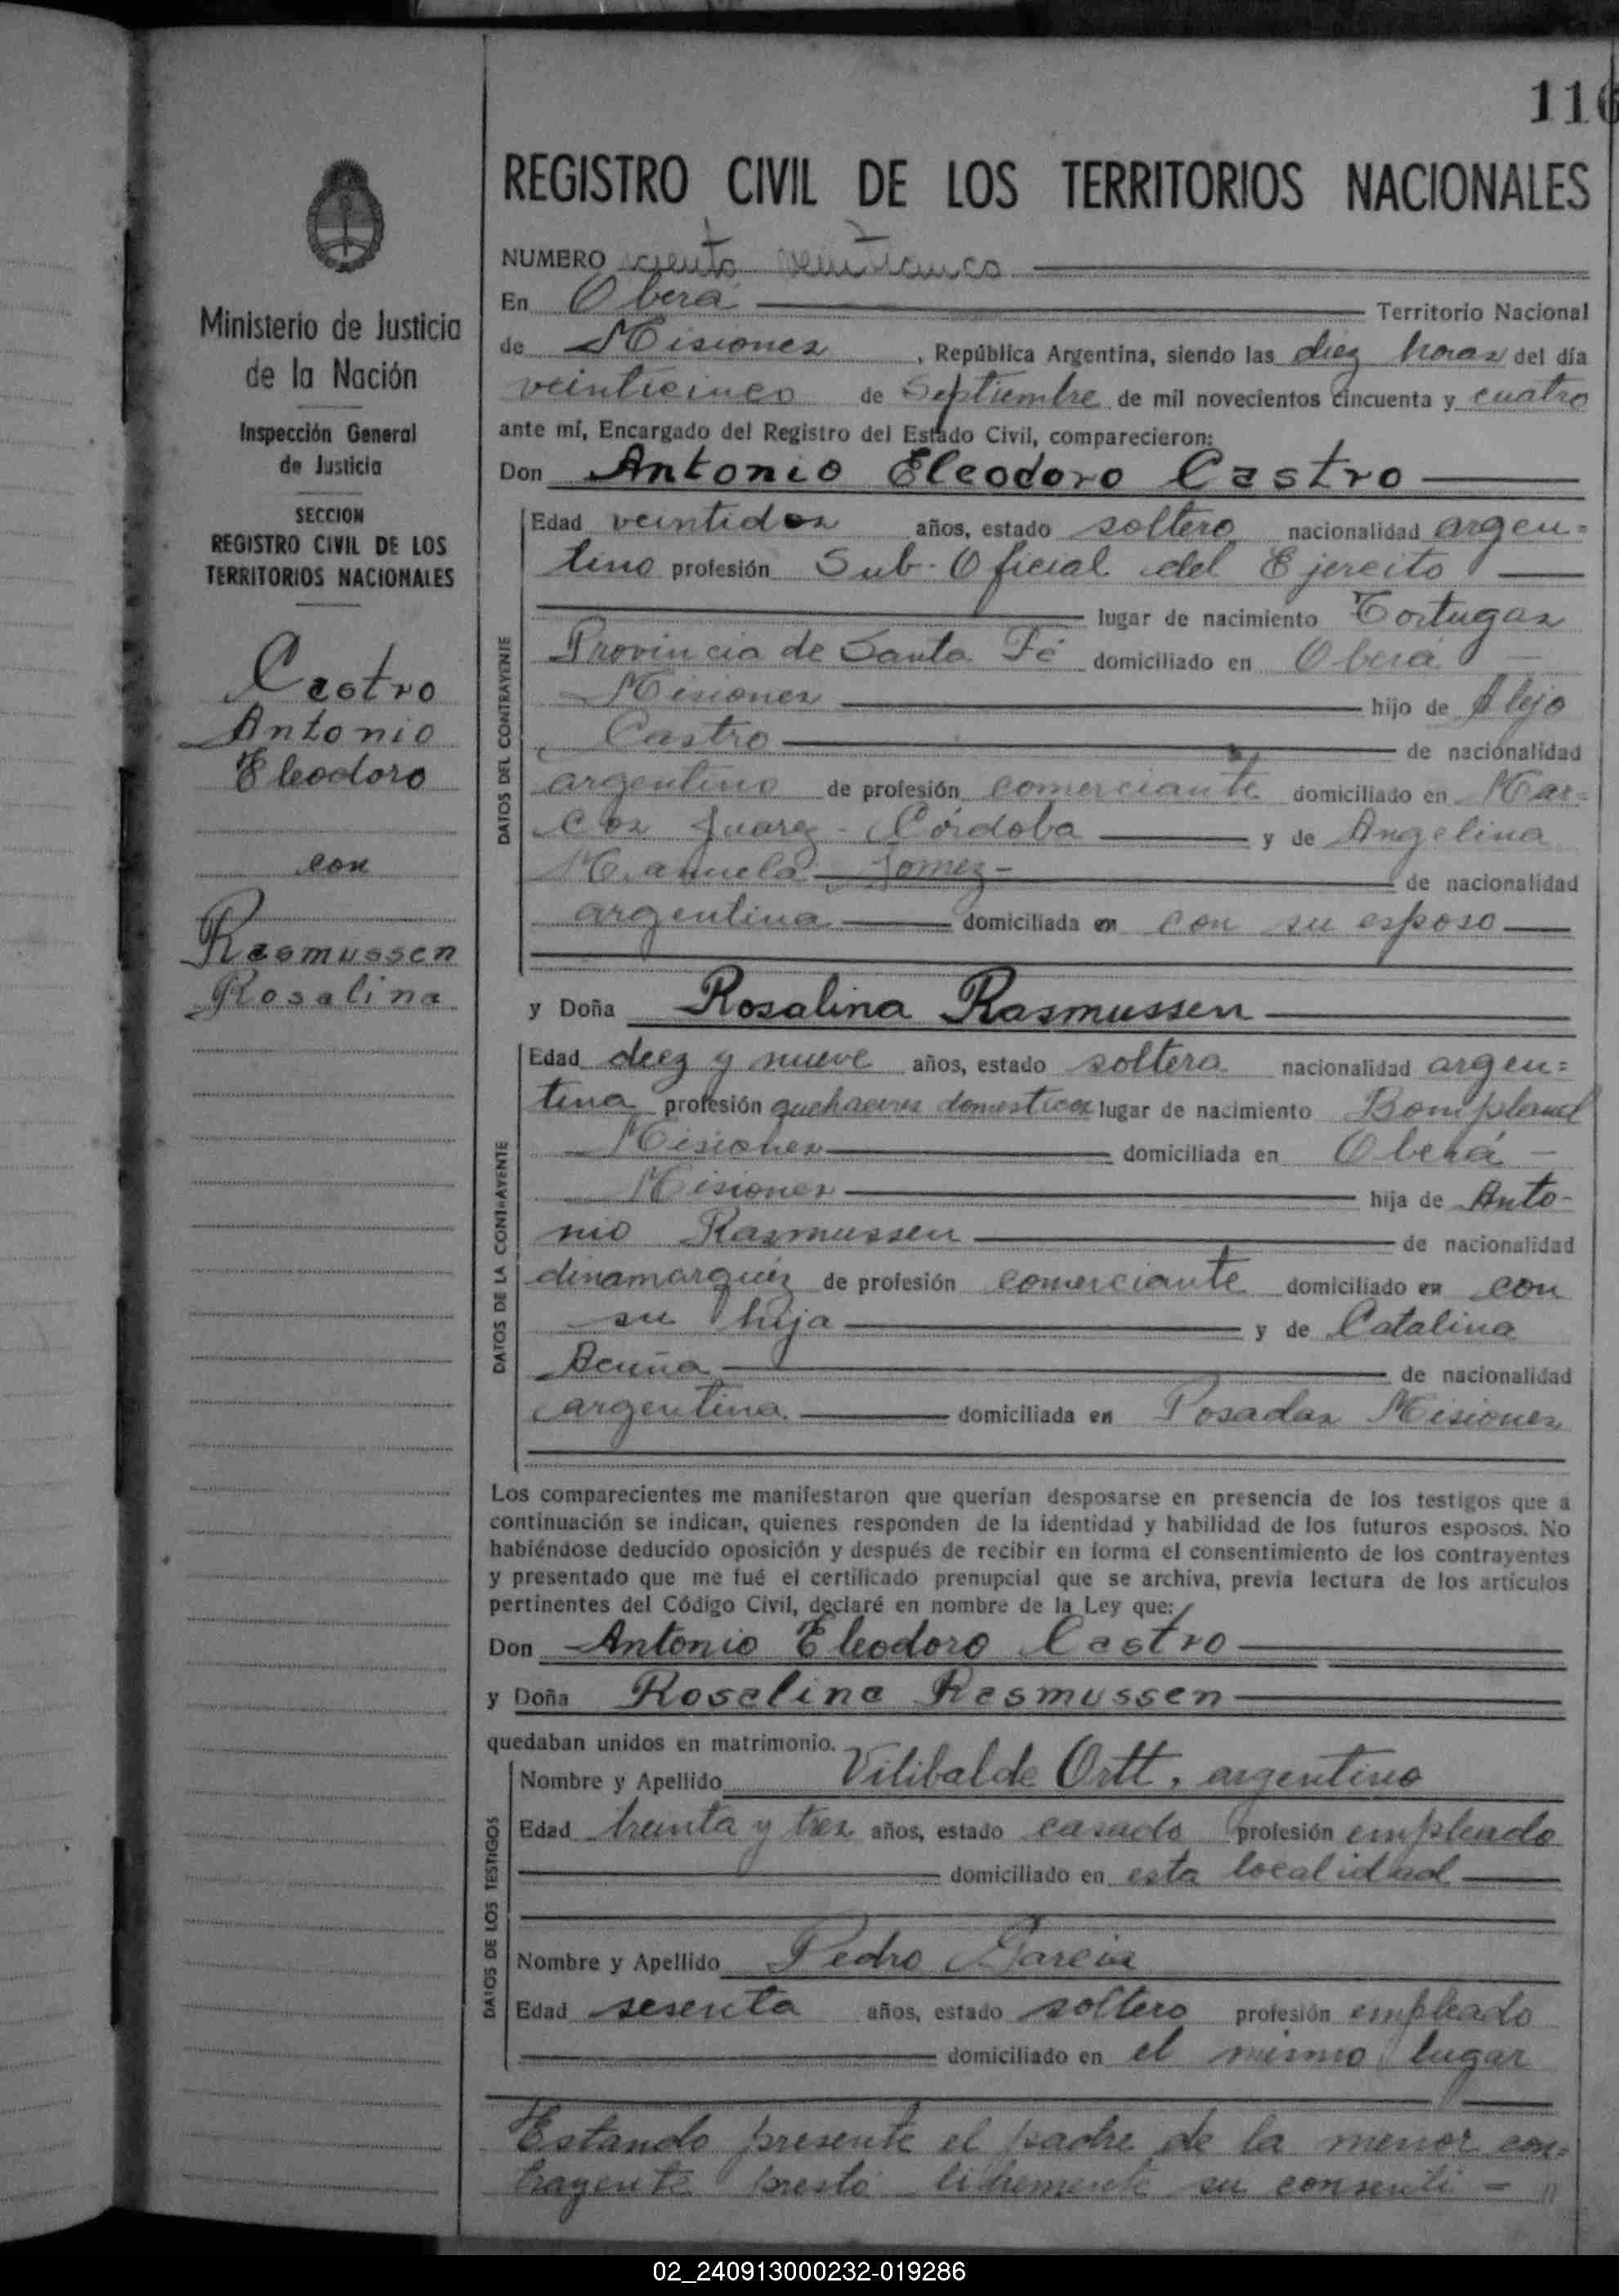 116
REGISTRO CIVIL DE LOS TERRITORIOS NACIONALES
NUMERO ciento veinticinco
En Oberá Territorio Nacional
de Misiones, República Argentina, siendo las diez horas del día
veinticinco de Septiembre de mil novecientos cincuenta y cuatro
ante mí, Encargado del Registro del Estado Civil, comparecieron:
Don Antonio Eleodoro Castro
DATOS DEL CONTRAYENTE
Edad veintidos años, estado soltero nacionalidad argen=
tino profesión Sub-Oficial del Ejercito
lugar de nacimiento Tortugas
Provincia de Santa Fé domiciliado en Oberá
Misiones hijo de Alejo
Castro de nacionalidad
argentino de profesión comerciante domiciliado en Mar=
cos Juarez - Córdoba y de Angelina
Manuela Gomez- de nacionalidad
argentina domiciliada en con su esposo
y Doña Rosalina Rasmussen
DATOS DE LA CONTRAYENTE
Edad diez y nueve años, estado soltera nacionalidad argen=
tina profesión quehaceres domesticos lugar de nacimiento Bompland
Misiones domiciliada en Oberá -
Misiones hija de Anto-
nio Rasmussen de nacionalidad
dinamarquéz de profesión comerciante domiciliado en con
su hija y de Catalina
Acuña de nacionalidad
argentina. domiciliada en Posadas Misiones
Los comparecientes me manifestaron que querían desposarse en presencia de los testigos que a
continuación se indican, quienes responden de la identidad y habilidad de los futuros esposos. No
habiéndose deducido oposición y después de recibir en forma el consentimiento de los contrayentes
y presentado que me fué el certificado prenupcial que se archiva, previa lectura de los artículos
pertinentes del Código Civil, declaré en nombre de la Ley que:
Don Antonio Eleodoro Castro
y Doña Rosalina Rasmussen
quedaban unidos en matrimonio.
DATOS DE LOS TESTIGOS
Nombre y Apellido Vilibalde Ortt, argentino
Edad treinta y tres años, estado casado profesión empleado
domiciliado en esta localidad
Nombre y Apellido Pedro Garcia
Edad sesenta años, estado soltero profesión empleado
domiciliado en el mismo lugar
Estando presente el padre de la menor con=
trayente prestó libremente su consenti = "
Ministerio de Justicia
de la Nación
Inspección General
de Justicia
SECCION
REGISTRO CIVIL DE LOS
TERRITORIOS NACIONALES
Castro
Antonio
Eleodoro
con
Rasmussen
Rosalina
02_240913000232-019286